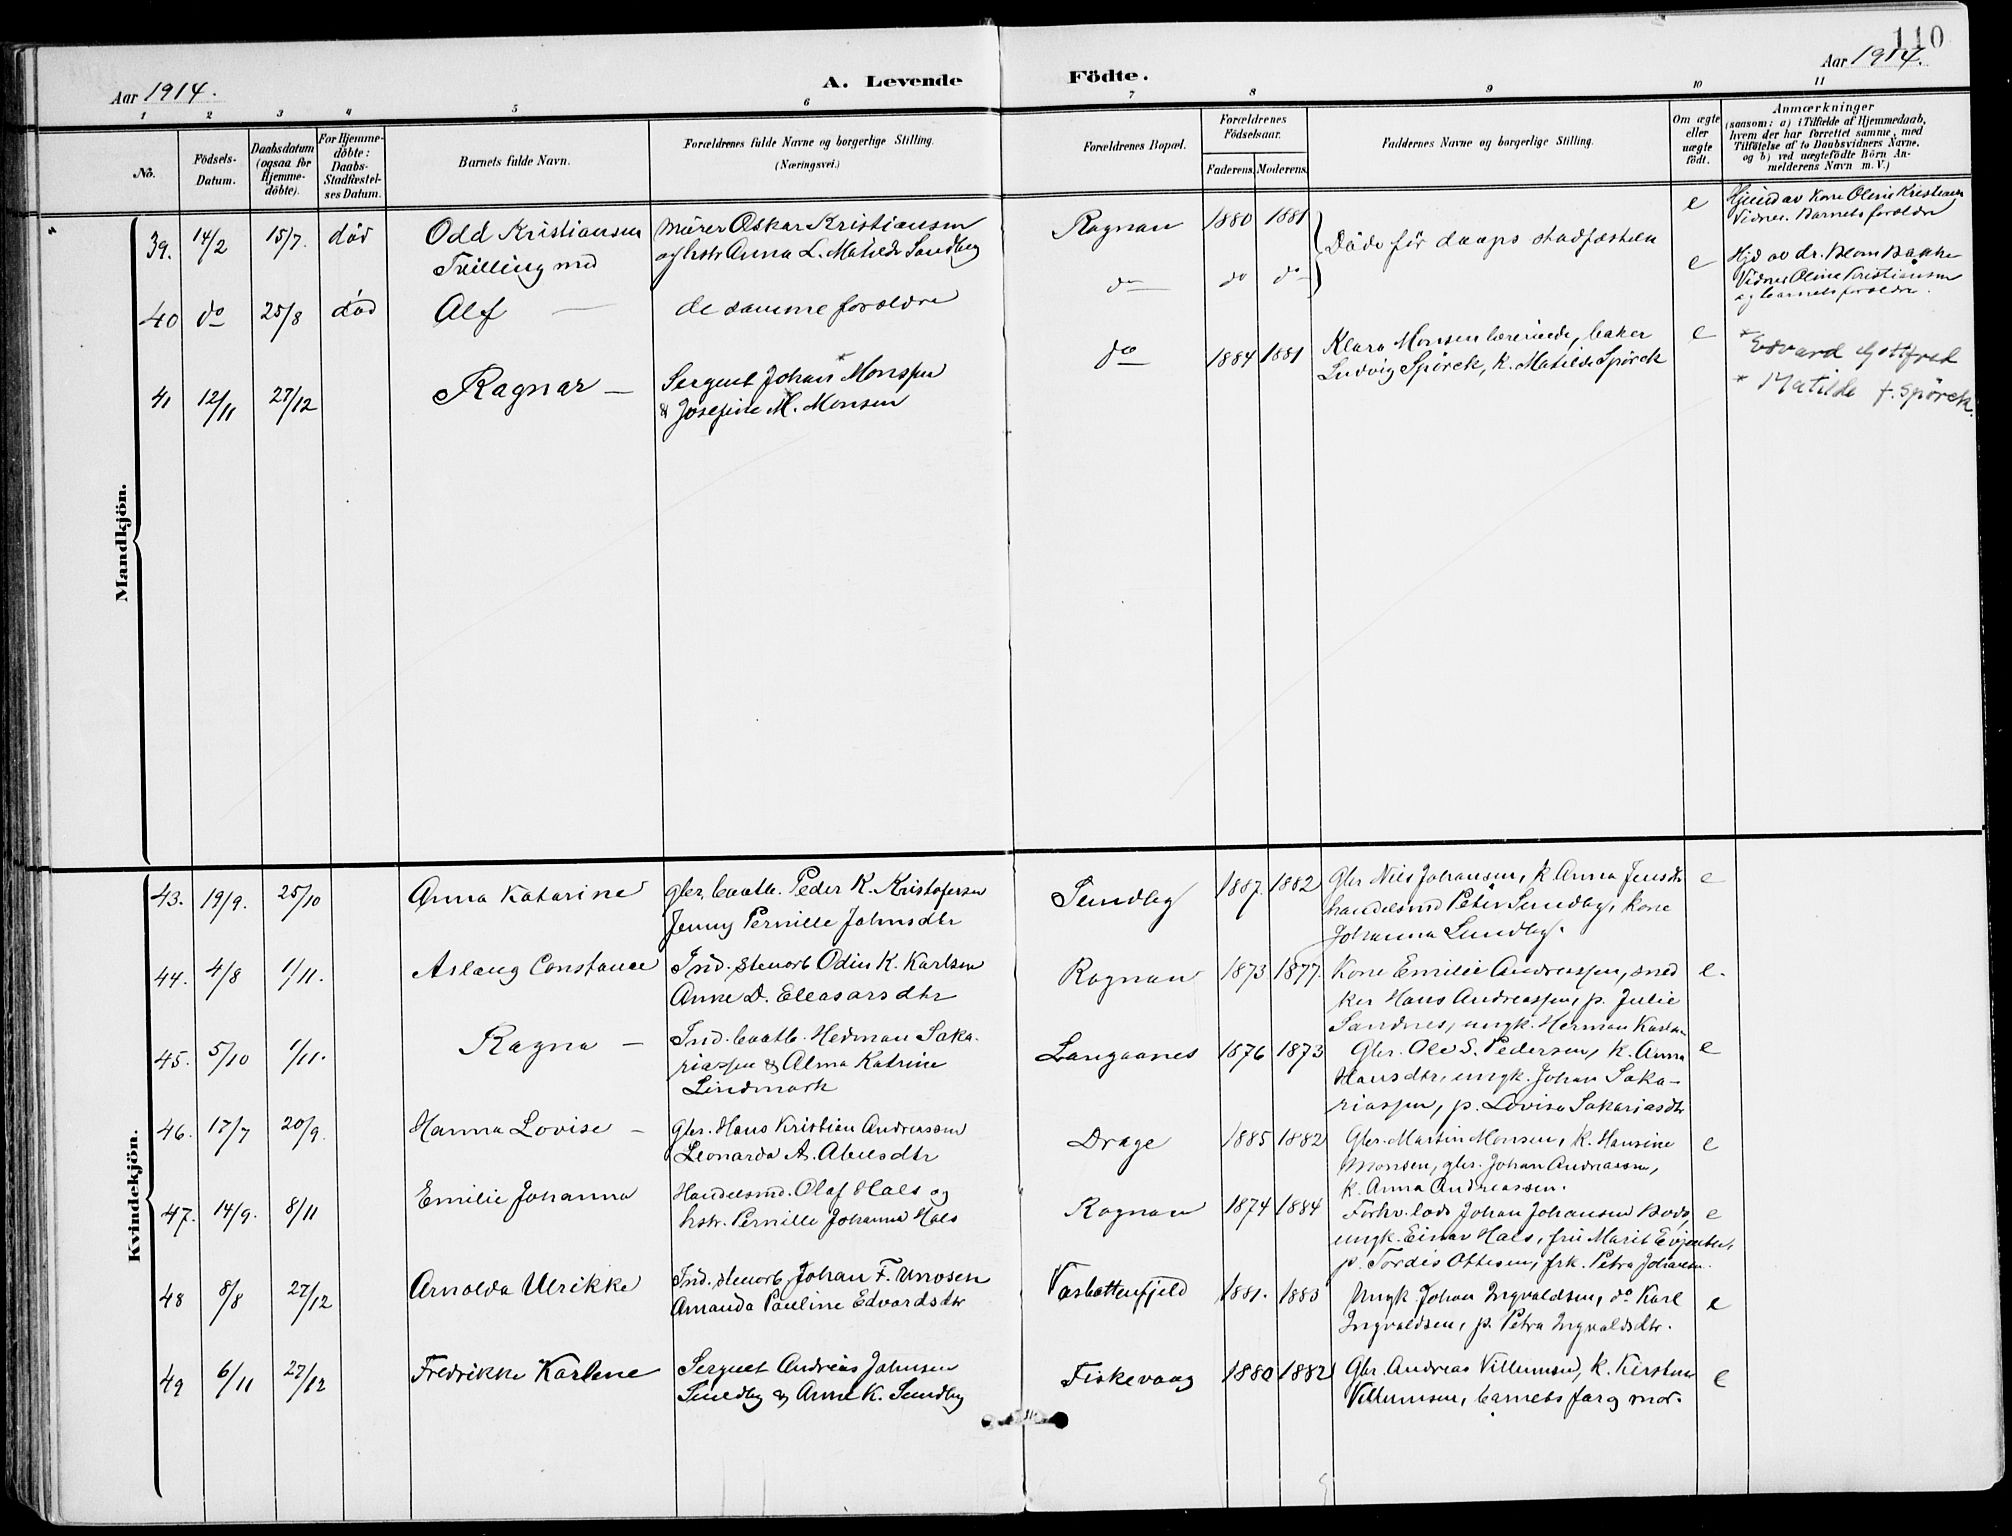 110
Aar 1914.
A. Levende Födte.
Aar 1914.
1 2 3 4 5 6 7 8 9 10 11
No.
Födsels-Datum.
Daabsdatum (ogsaa for Hjemmedöbte).
For Hjemmedöbte: Daabs-Stadfestelses Datum.
Barnets fulde Navn.
Forældrenes fulde Navne og borgerlige Stilling.
(Næringsvei.)
Forældrenes Bopæl.
Forældrenes Födselsaar.
Faderens. Moderens.
Faddernes Navne og borgerlige Stilling.
Om ægte eller uægte födt.
Anmærkninger
(saasom: a) i Tilfælde af Hjemmedaab,
hvem der har forrettet samme, med
Tilföielse af to Daabsvidners Navne,
og b) ved uægtefödte Börn An-
melderens Navn m. V.)
Mandkjön.
39. 14/2 15/7. död Odd Kristiansen Murer Oskar Kristiansen Rognan 1880 1881 Döde för daaps stadfæstelse e Hjemd av Kone Oline Kristiansen
Tvilling med og hstr Anna L. Matilde Sandberg Vidner. Barnets foreldre
40 do 25/8 död Alf — de samme foreldre do do do e Hjd av dr. Blom Bakke
Vidner Oline Kristiansen
og barnets foreldre.
41 12/11 27/12 Ragnar — Sergent Johan * Monsen do 1884 1881 Klara Monsen lærerinde, baker e * Edvard Gottfred
& Josefine M. Monsen Ludvig Spörck, k. Matilde Spörck * Matilde f. Spörck.
Kvindekjön.
43. 19/9. 25/10 Anna Katarine gbr, baatb. Peder K. Kristofersen Sundby 1887. 1882 Gbr Nils Johansen, k Anna Jensdtr e
Jenny Pernille Johnsdtr handelsmd Peter Sundby, kone
Johanna Sundby.
44. 4/8 1/11. Aslaug Constance Ind. stenarb Odin K. Karlsen Rognan 1873 1877. Kone Emilie Andreassen, sned e.
Anne D. Eleasarsdtr ker Hans Andreassen, p. Julie
Sandnes, ungk. Herman
45. 5/10 1/11. Ragna — Ind. baatb. Hedman Saka- Langaanes 1876 1873 Gbr. Ole S. Pedersen, k. Anna e
riassen & Alma Katrine Hansdtr, ungk. Johan Saka-
Lindmark riassen, p. Lovise Sakariasdtr
46. 17/7 20/9. Hanna Lovise — gbr. Hans Kristian Andreassen Drage 1885 1882 Gbr. Martin Monsen, k. Hansine e
Leonarda A. Abelsdtr Monsen, gbr. Johan Andreassen,
k. Anna Andreassen.
47. 14/9. 8/11 Emilie Johanna Handelsmd. Olaf Hals og Rognan 1874 1884 Forhv. lods Johan Johansen Bodö, e
hstr. Pernille Johanna Hals ungk. Einar Hals, fru Marit Evjenth,
p. Tordis Ottesen, frk. Petra Johansen.
48 8/8 27/12 Arnolda Ulrikke Ind. stenarb Johan F. Unosen Vasbottenfjeld 1881. 1883 Ungk. Johan Ingvaldsen, do Karl e
Amanda Pauline Edvardsdtr Ingvaldsen, p. Petra Ingvaldsdtr.
49 6/11 27/12 Fredrikke Karlene Sergnet Andreas Johnsen Fiskevaag 1880 1882 Gbr. Andreas Villumsen, k. Kirstine e
Sundby & Anne K. Sundby Villumsen, barnets far og mor.